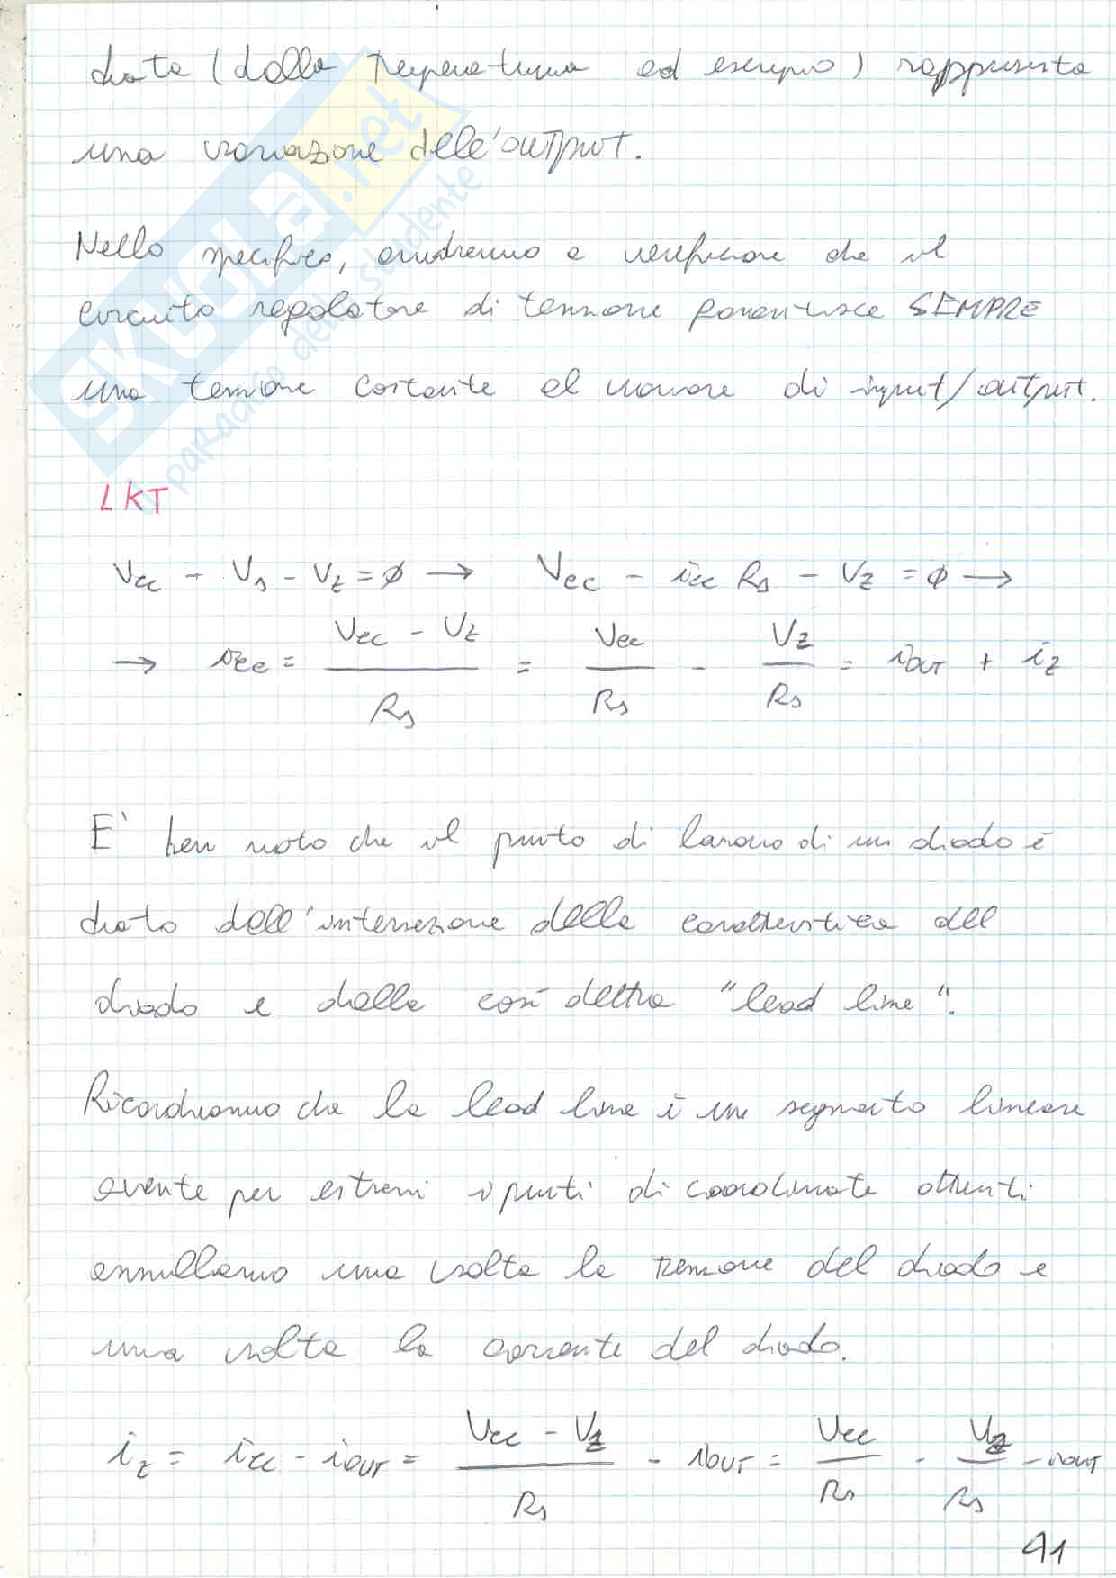 data (dalla temperatura ad esempio) rappresenta
una variazione dell'output.
Nello specifico, andremo a verificare che il
circuito regolatore di tensione garantisce SEMPRE
una tensione costante al variare di input/output.
LKT
Vcc - Vs - Vz = ∅ → Vcc - icc Rs - Vz = ∅ →
→ icc = (Vcc - Vz) / Rs = Vcc / Rs - Vz / Rs = iOUT + iz
E' ben noto che il punto di lavoro di un diodo è
dato dell'intersezione della caratteristica del
diodo e dalla così detta "load line".
Ricordiamo che la load line è un segmento lineare
avente per estremi i punti di coordinate ottenuti
annullando una volta la tensione del diodo e
una volta la corrente del diodo.
iz = icc - iOUT = (Vcc - Vz) / Rs - iOUT = Vcc / Rs - Vz / Rs - iOUT
41
skuola.net
il paradiso dello studente